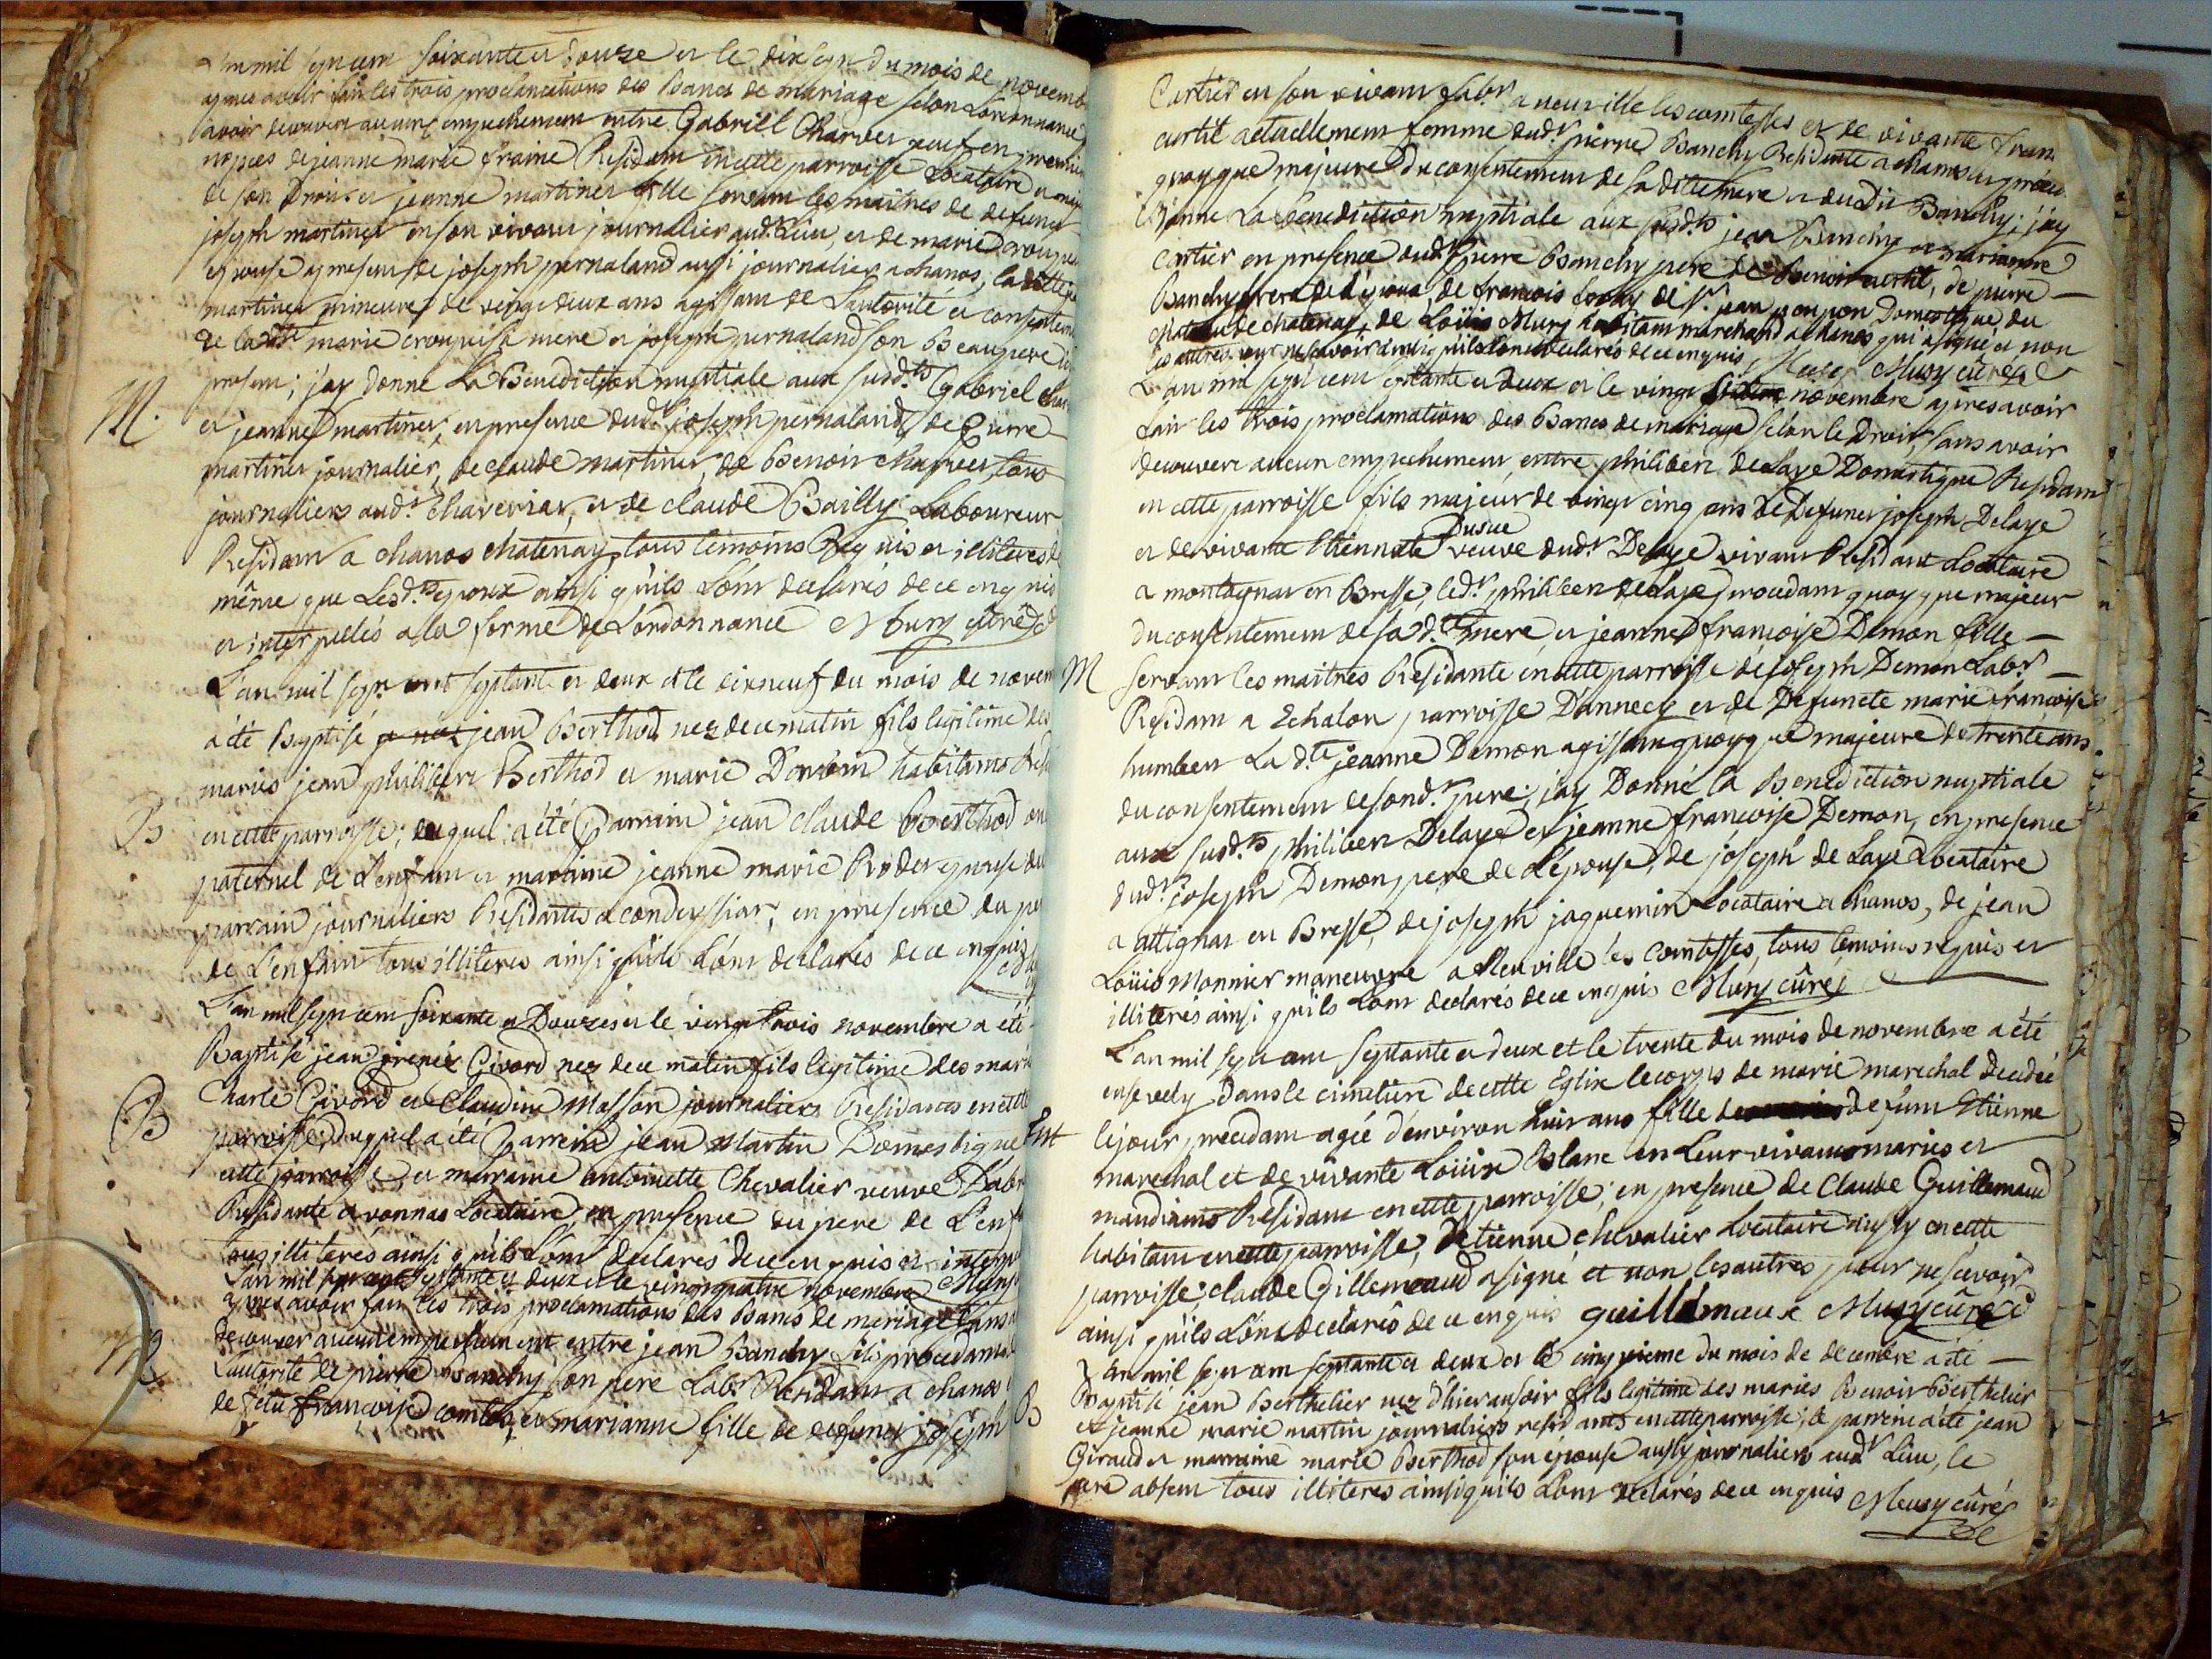 mil sept cent soixante et douze et le dix sept du mois de novemb
apres avoir fait les trois proclamations des bancs de mariage selon L'ordonnance
avoir decouvert aucun empechement entre Gabriel Charvet veuf en premier
nopces de jeanne marie fraine Residant en cette parroisse Locataire et
de son Droit et jeanne martinet fille servant les maitres de defunct
joseph martinet en son vivant journalier aud.t Lieu, et de marie
epouse a present de joseph pernaland aussi journalier a chanos, la ditte
martinet mineure de vingt deux ans agissant de L'autorite et consentem
de lad.te marie sa mere et joseph pernaland son Beaupere
present; j'ay donné La Benediction nuptiale aux susd.ts Gabriel
M.
et jeanne martinet, en presence dud.t joseph pernaland, de pierre
martinet journalier, de claude martinet, de Benoit charvet tous
journaliers aud.t Chaveriat, et de claude Bailly Laboureur
Residant a chanos chatenay, tous temoins Requis et illiteres
même que Lesd.ts epoux ainsi qu'ils L'ont declarés de ce enquis
et interpellés a la forme de L'ordonnance Musy curé
L'an mil sept cent septante et deux et le dixneuf du mois de novem
a été Baptisé jean Berthod nez de ce matin fils legitime des
mariés jean philibert Berthod et marie habitants
B
en cette parroisse; duquel a été Parrain jean claude Berthod on
paternel de L'enfant et marraine jeanne marie epouse du
parrain journaliers Residants a condeyssiat, en presence du pe
de L'enfant tous illiteres ainsi qu'ils L'ont declarés de ce enquis
L'an mil sept cent soixante et Douze et le vingt trois novembre a eté
Baptisé jean Givord nez de ce matin fils legitime des marié
Charle Givord et Claudine Masson journaliers Residants en cette
B
parroisse, duquel a été Parrein jean Martin Domestique
cette parroisse et marraine antoinette Chevalier veuve
Residante a vonnas Locataire, en presence du pere de L'enf
tous illiteres ainsi qu'ils L'ont declarés de ce enquis et interp
L'an mil sept cent septante et deux et le vingt quatre novembre Musy
apres avoir fait les trois proclamations des Bancs de mariage sans
decouver aucun empechement entre jean Banchy fils procedant
M
L'autorite de pierre Banchy son pere Lab.r Residant a chanos
de françoise et marianne fille de defunct joseph
Cartier en son vivant Lab.r a neuville les comtesses et de vivante fran
curtil actuellement femme dud.t pierre Banchy Residente a chanos
quoyque majeure du consentement de sa ditte mere et dudit Banchy; j'ay
donné La Benediction nuptiale aux susd.ts jean Banchy et marianne
Cartier en presence dud.t pierre Banchy pere de Benoit curtil, de pierre
Banchy frere de L'epoux, de francois de S.r jean Domestique du
chateau de chatenay, de Loüis Mury habitant marchand a chanos qui a signé et non
les autres pour ne scavoir ainsi qu'ils L'ont declarés de ce enquis Musy curé
L'an mil sept cent septante et deux et le vingt novembre apres avoir
fait les trois proclamations des Bancs de mariage selon le Droit, sans avoir
decouvert aucun empechement entre philibert delaye Domestique Residant
en cette parroisse fils majeur de vingt cinq ans de Defunct joseph Delaye
et de vivante Etiennete Dusue veuve dud.t Delaye vivant Residant Locataire
a montagnat en Bresse, led.t philibert delaye procedant quoyque majeur
du consentement de sad.te mere, et jeanne françoise Demon fille
M
servant les maitres Residante en cette parroisse de joseph Demon Lab.r
Residant a Echalon parroisse D'annecy et de Defuncte marie francoise
humbert La d.te jeanne Demon agissant quoyque majeure de trente ans
du consentement de sond.t pere, j'ay Donné la Benediction nuptiale
aux susd.ts philibert Delaye et jeanne françoise Demon, en presence
dud.t joseph Demon pere de L'epouse, de joseph de Laye Locataire
a attignat en Bresse, de joseph jaquemin Locataire a chanos, de jean
Loüis Monnier maneuvre a Neuville les comtesses, tous temoins requis et
illiterés ainsi qu'ils L'ont declarés de ce enquis Musy curé
L'an mil sept cent septante et deux et le trente du mois de novembre a été
ensevely dans le cimetiere de cette Eglise le corps de marie marechal decedée
Ent
le jour precedant agée d'environ huit ans fille de defunt Etienne
marechal et de vivante Loüise Blanc en Leur vivant mariés et
mandiants Residant en cette parroisse; en presence de Claude Guillemaud
habitant en cette parroisse, D'etienne chevalier Locataire aussy en cette
parroisse; claude Gillemeaud a signé et non les autres pour ne scavoir
ainsi qu'ils L'ont declarés de ce enquis guillemaux Musy curé
L'an mil sept cent septante et deux et le cinquieme du mois de decembre a été
B
Baptisé jean Berthelier nez d'hier ausoir fils legitime des mariés Benoit Berthelier
et jeanne marie martin journaliers residants en cette parroisse; le parrein a été jean
Giraud et marraine marie Berthod son epouse aussy journaliers aud.t Lieu, le
pere absent tous illiteres ainsi qu'ils L'ont declarés de ce enquis Musy curé